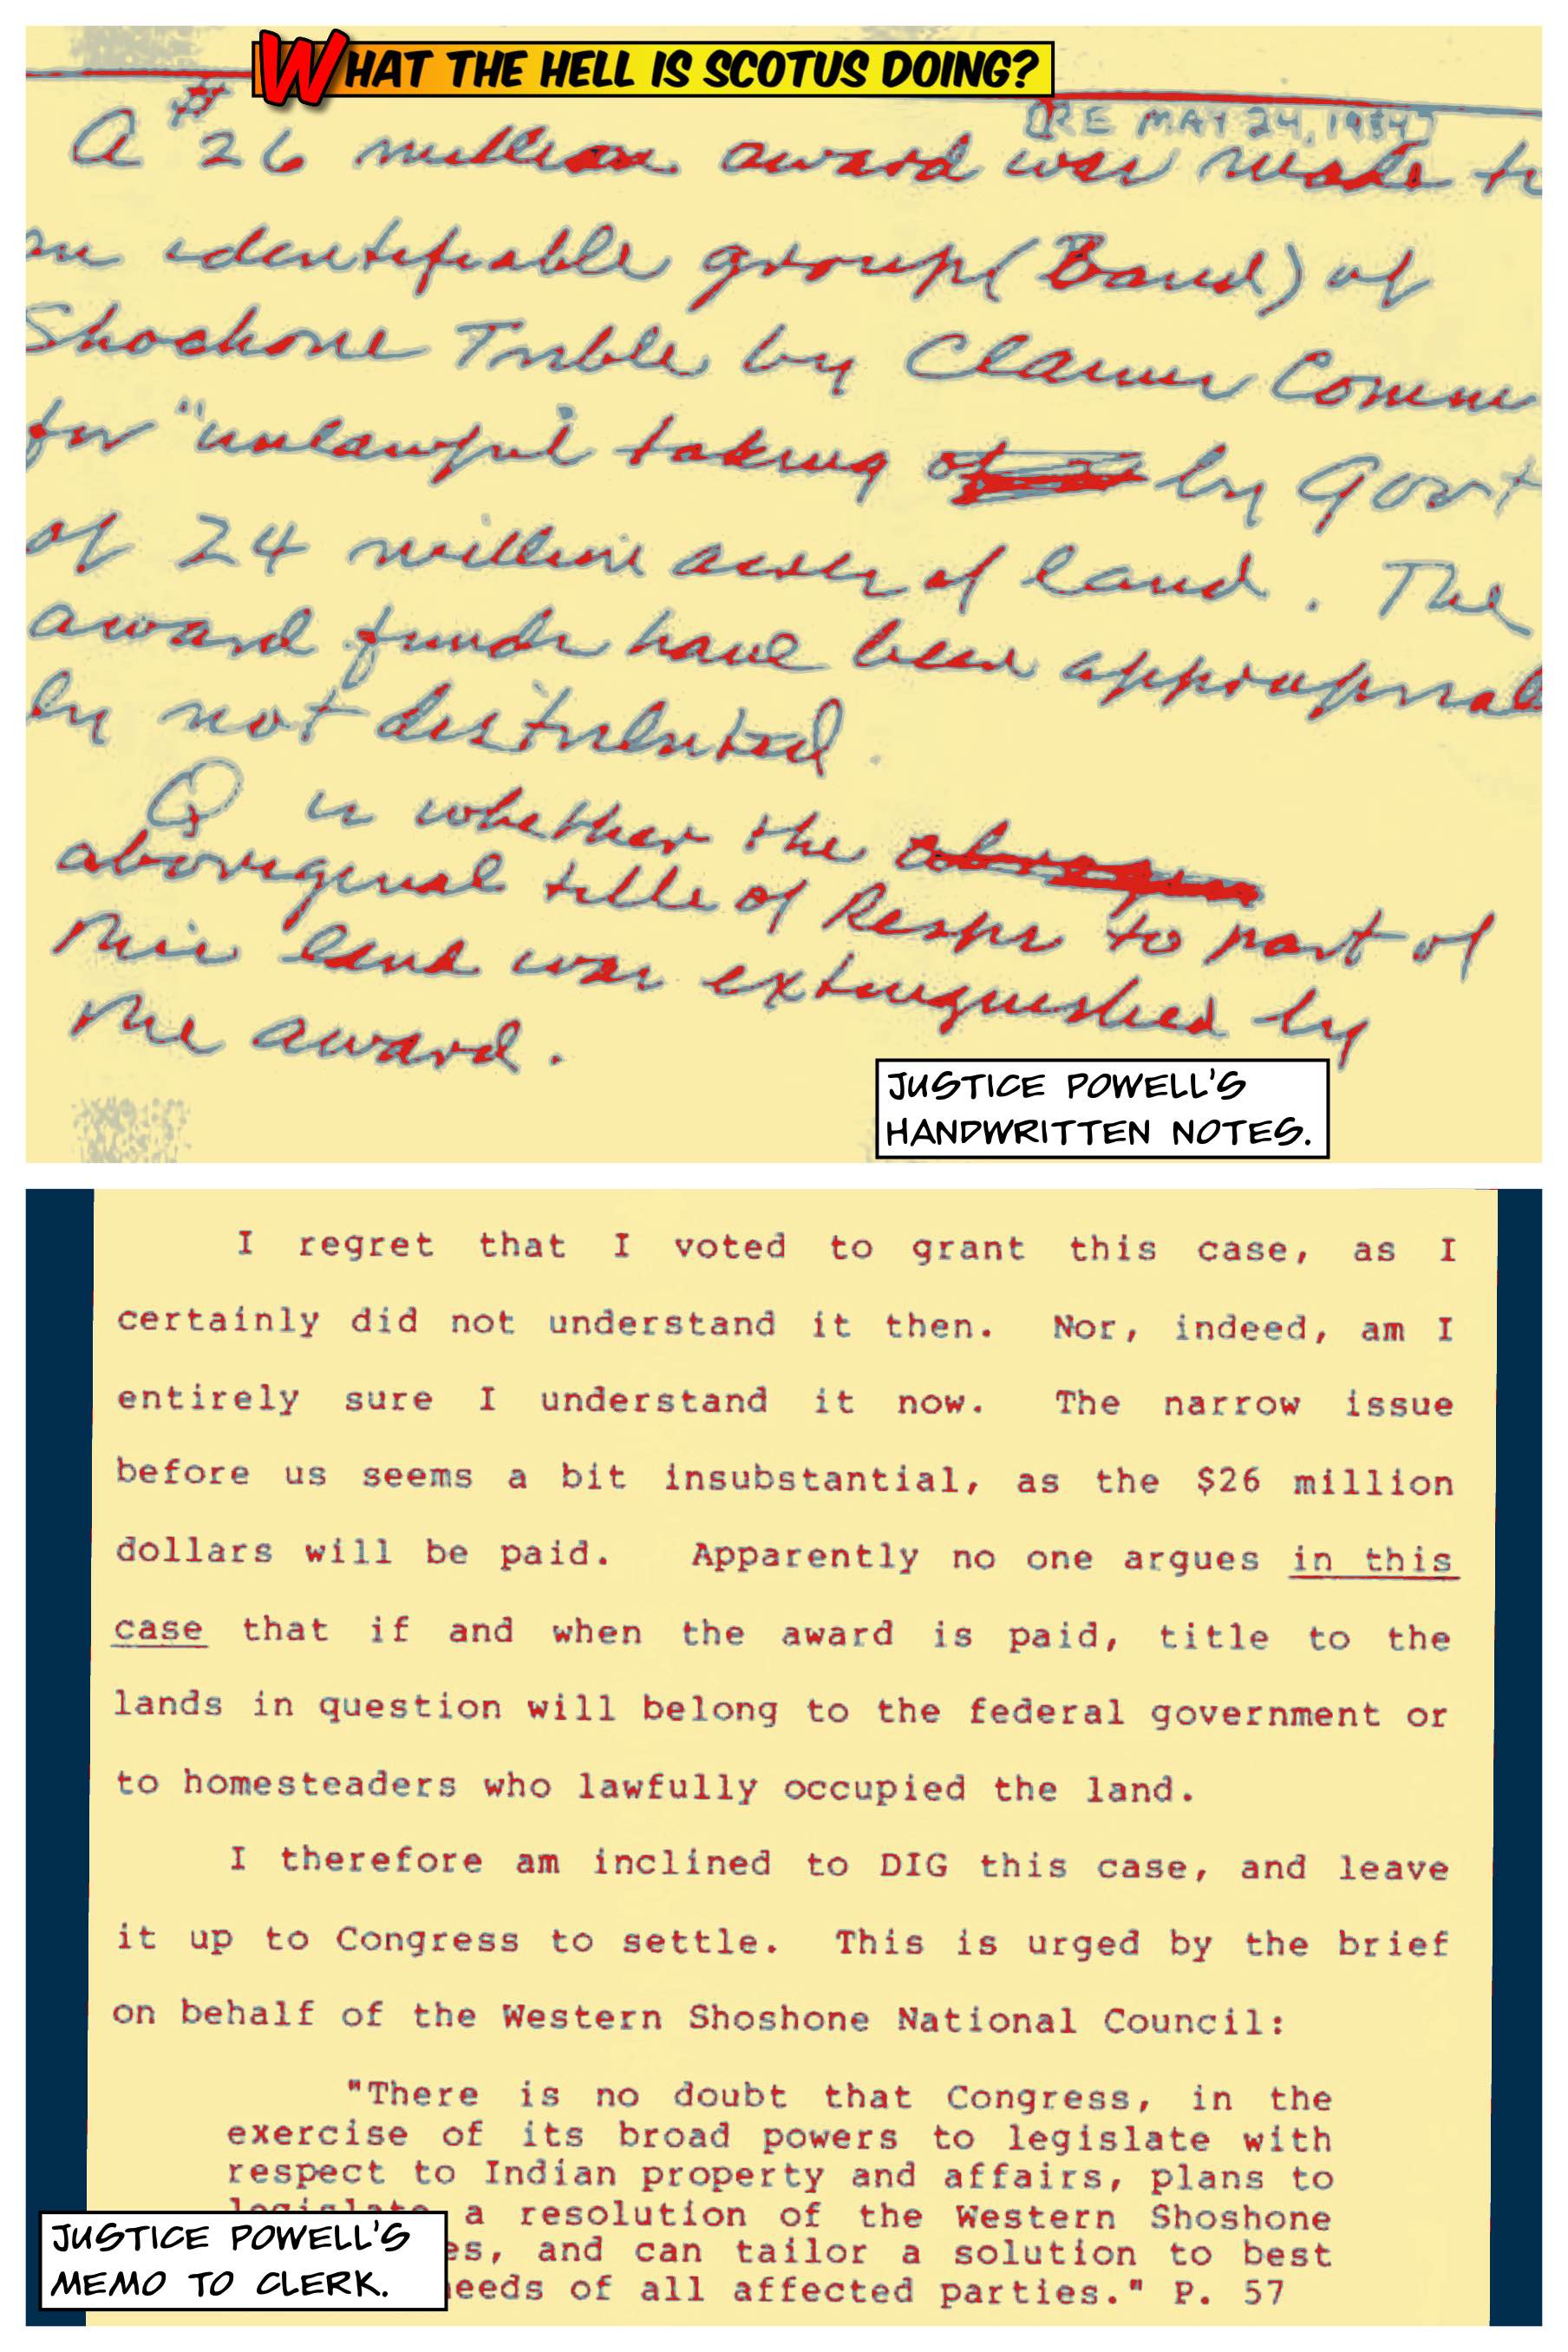 WHAT THE HELL IS SCOTUS DOING?
[RE MAY 24, 1984]
A $26 million award was made to
an identifiable group (Band) of
Shoshone Trible by Claims Comm
for "unlawful taking of by Govt
of 24 million acres of land. The
award funds have been appropriat
by not distributed.
Q is whether the
aboriginal title of Resps to part of
this land was extinguished by
the award.
JUSTICE POWELL'S
HANDWRITTEN NOTES.
I regret that I voted to grant this case, as I
certainly did not understand it then. Nor, indeed, am I
entirely sure I understand it now. The narrow issue
before us seems a bit insubstantial, as the $26 million
dollars will be paid. Apparently no one argues in this
case that if and when the award is paid, title to the
lands in question will belong to the federal government or
to homesteaders who lawfully occupied the land.
I therefore am inclined to DIG this case, and leave
it up to Congress to settle. This is urged by the brief
on behalf of the Western Shoshone National Council:
"There is no doubt that Congress, in the
exercise of its broad powers to legislate with
respect to Indian property and affairs, plans to
legislate a resolution of the Western Shoshone
es, and can tailor a solution to best
needs of all affected parties." P. 57
JUSTICE POWELL'S
MEMO TO CLERK.